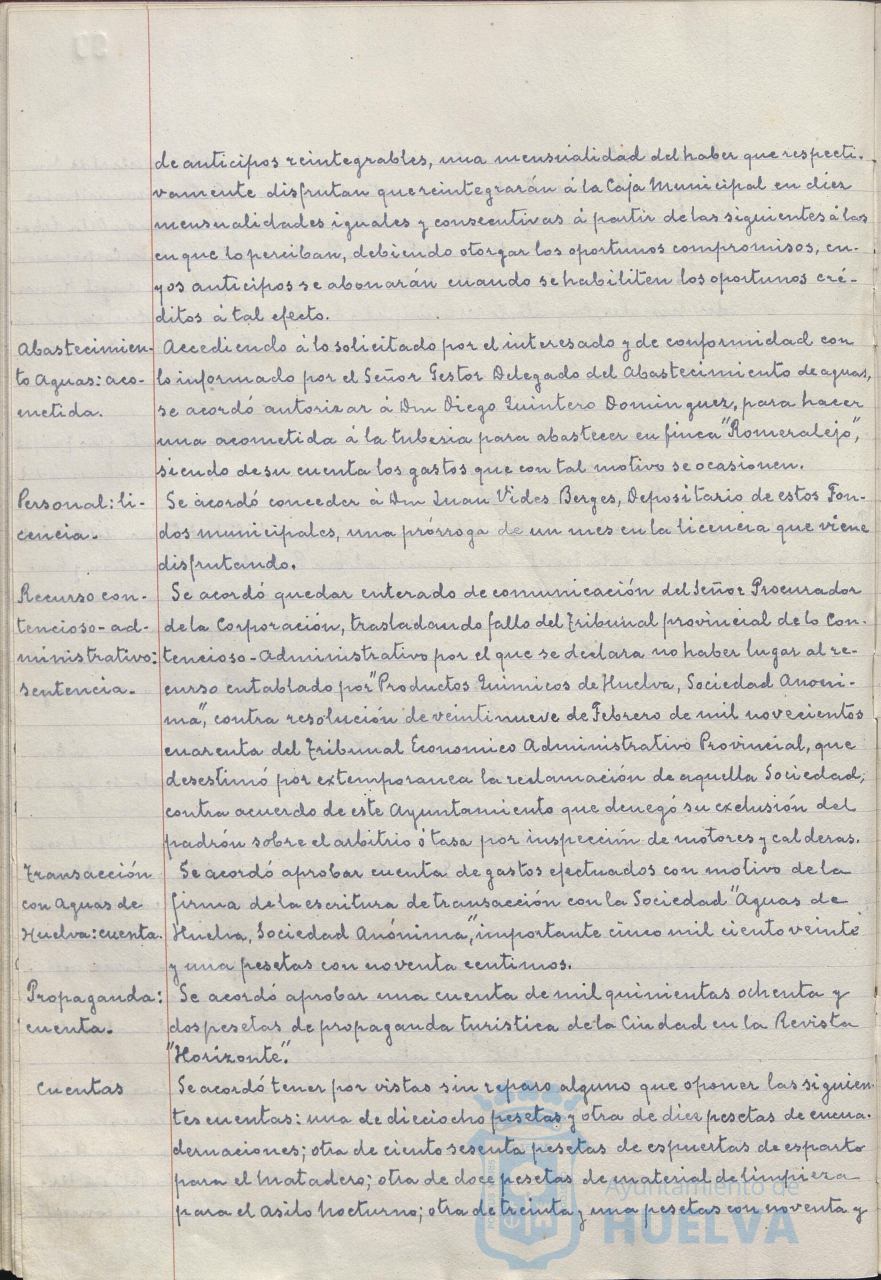 de anticipos reintegrables, una mensualidad del haber que respecti-
vamente disfrutan que reintegrarán á la Caja Municipal en diez
mensualidades iguales y consecutivas á partir de las siguientes á las
en que lo perciban, debiendo otorgar los oportunos compromisos, cu-
yos anticipos se abonarán cuando se habiliten los oportunos cré-
ditos á tal efecto.
Abastecimien-
to Aguas: aco-
metida.
Accediendo á lo solicitado por el interesado y de conformidad con
lo informado por el Señor Gestor Delegado del Abastecimiento de aguas,
se acordó autorizar á Don Diego Quintero Dominguez, para hacer
una acometida á la tubería para abastecer su finca "Romeralejo",
siendo de su cuenta los gastos que con tal motivo se ocasionen.
Personal: li-
cencia.
Se acordó conceder á Don Juan Vides Berges, Depositario de estos Fon-
dos municipales, una prórroga de un mes en la licencia que viene
disfrutando.
Recurso con-
tencioso-ad-
ministrativo:
sentencia.
Se acordó quedar enterado de comunicación del Señor Procurador
de la Corporación, trasladando fallo del Tribunal provincial de lo Con-
tencioso-Administrativo por el que se declara no haber lugar al re-
curso entablado por "Productos Quimicos de Huelva, Sociedad Anoni-
ma", contra resolución de veintinueve de Febrero de mil novecientos
cuarenta del Tribunal Economico Administrativo Provincial, que
desestimó por extemporanea la reclamación de aquella Sociedad,
contra acuerdo de este Ayuntamiento que denegó su exclusión del
padrón sobre el arbitrio ó tasa por inspección de motores y calderas.
Transacción
con Aguas de
Huelva: cuenta.
Se acordó aprobar cuenta de gastos efectuados con motivo de la
firma de la escritura de transacción con la Sociedad "Aguas de
Huelva, Sociedad Anónima", importante cinco mil ciento veinte
y una pesetas con noventa centimos.
Propaganda:
cuenta.
Se acordó aprobar una cuenta de mil quinientas ochenta y
dos pesetas de propaganda turistica de la Ciudad en la Revista
"Horizonte".
Cuentas
Se acordó tener por vistas sin reparo alguno que oponer las siguien-
tes cuentas: una de dieciocho pesetas y otra de diez pesetas de encua-
dernaciones; otra de ciento sesenta pesetas de espuertas de esparto
para el Matadero; otra de doce pesetas de material de limpieza
para el Asilo Nocturno; otra de treinta y una pesetas con noventa y
Ayuntamiento de
HUELVA